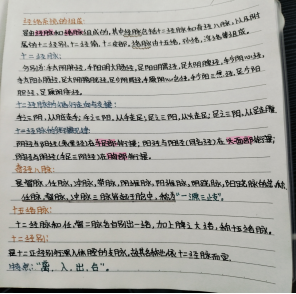 经络系统的组成:
是由经脉和络脉组成的,其中经脉包括十二经脉和奇经八脉,以及附
属的十二经别,十二经筋,十二皮部,络脉由十五络,孙络,浮络等组成。
十二经脉:
分别为:手太阴肺经,手阳明大肠经,足阳明胃经,足太阴脾经,手少阴心经,
手太阳小肠经,足太阳膀胱经,足少阴肾经,手厥阴心包经,手少阳三焦经,足少阳
胆经,足厥阴肝经。
十二经脉的走向
手之三阴,从胸走手;手之三阳,从手走头;足之三阳,从头走足;足之三阴,从足走腹
十二经脉的
阴经与阳经(表里经)在手足部衔接;阳经与阳经(同名经)在头面部衔接;
阴经与阴经(手足三阴经)在胸部衔接。
奇经八脉:
是督脉,任脉,冲脉,带脉,阴维脉,阳维脉,阴跷脉,阳跷脉的总称
任脉,督脉,冲脉三脉皆起于胞中,称为“一源三歧”。
十五络脉:
十二经脉和任督二脉各自别出一络,加上脾之大络,称十五络脉。
十二经别:
是十二正经别行深入体腔的支脉,
特点:“离,入,出,合”。